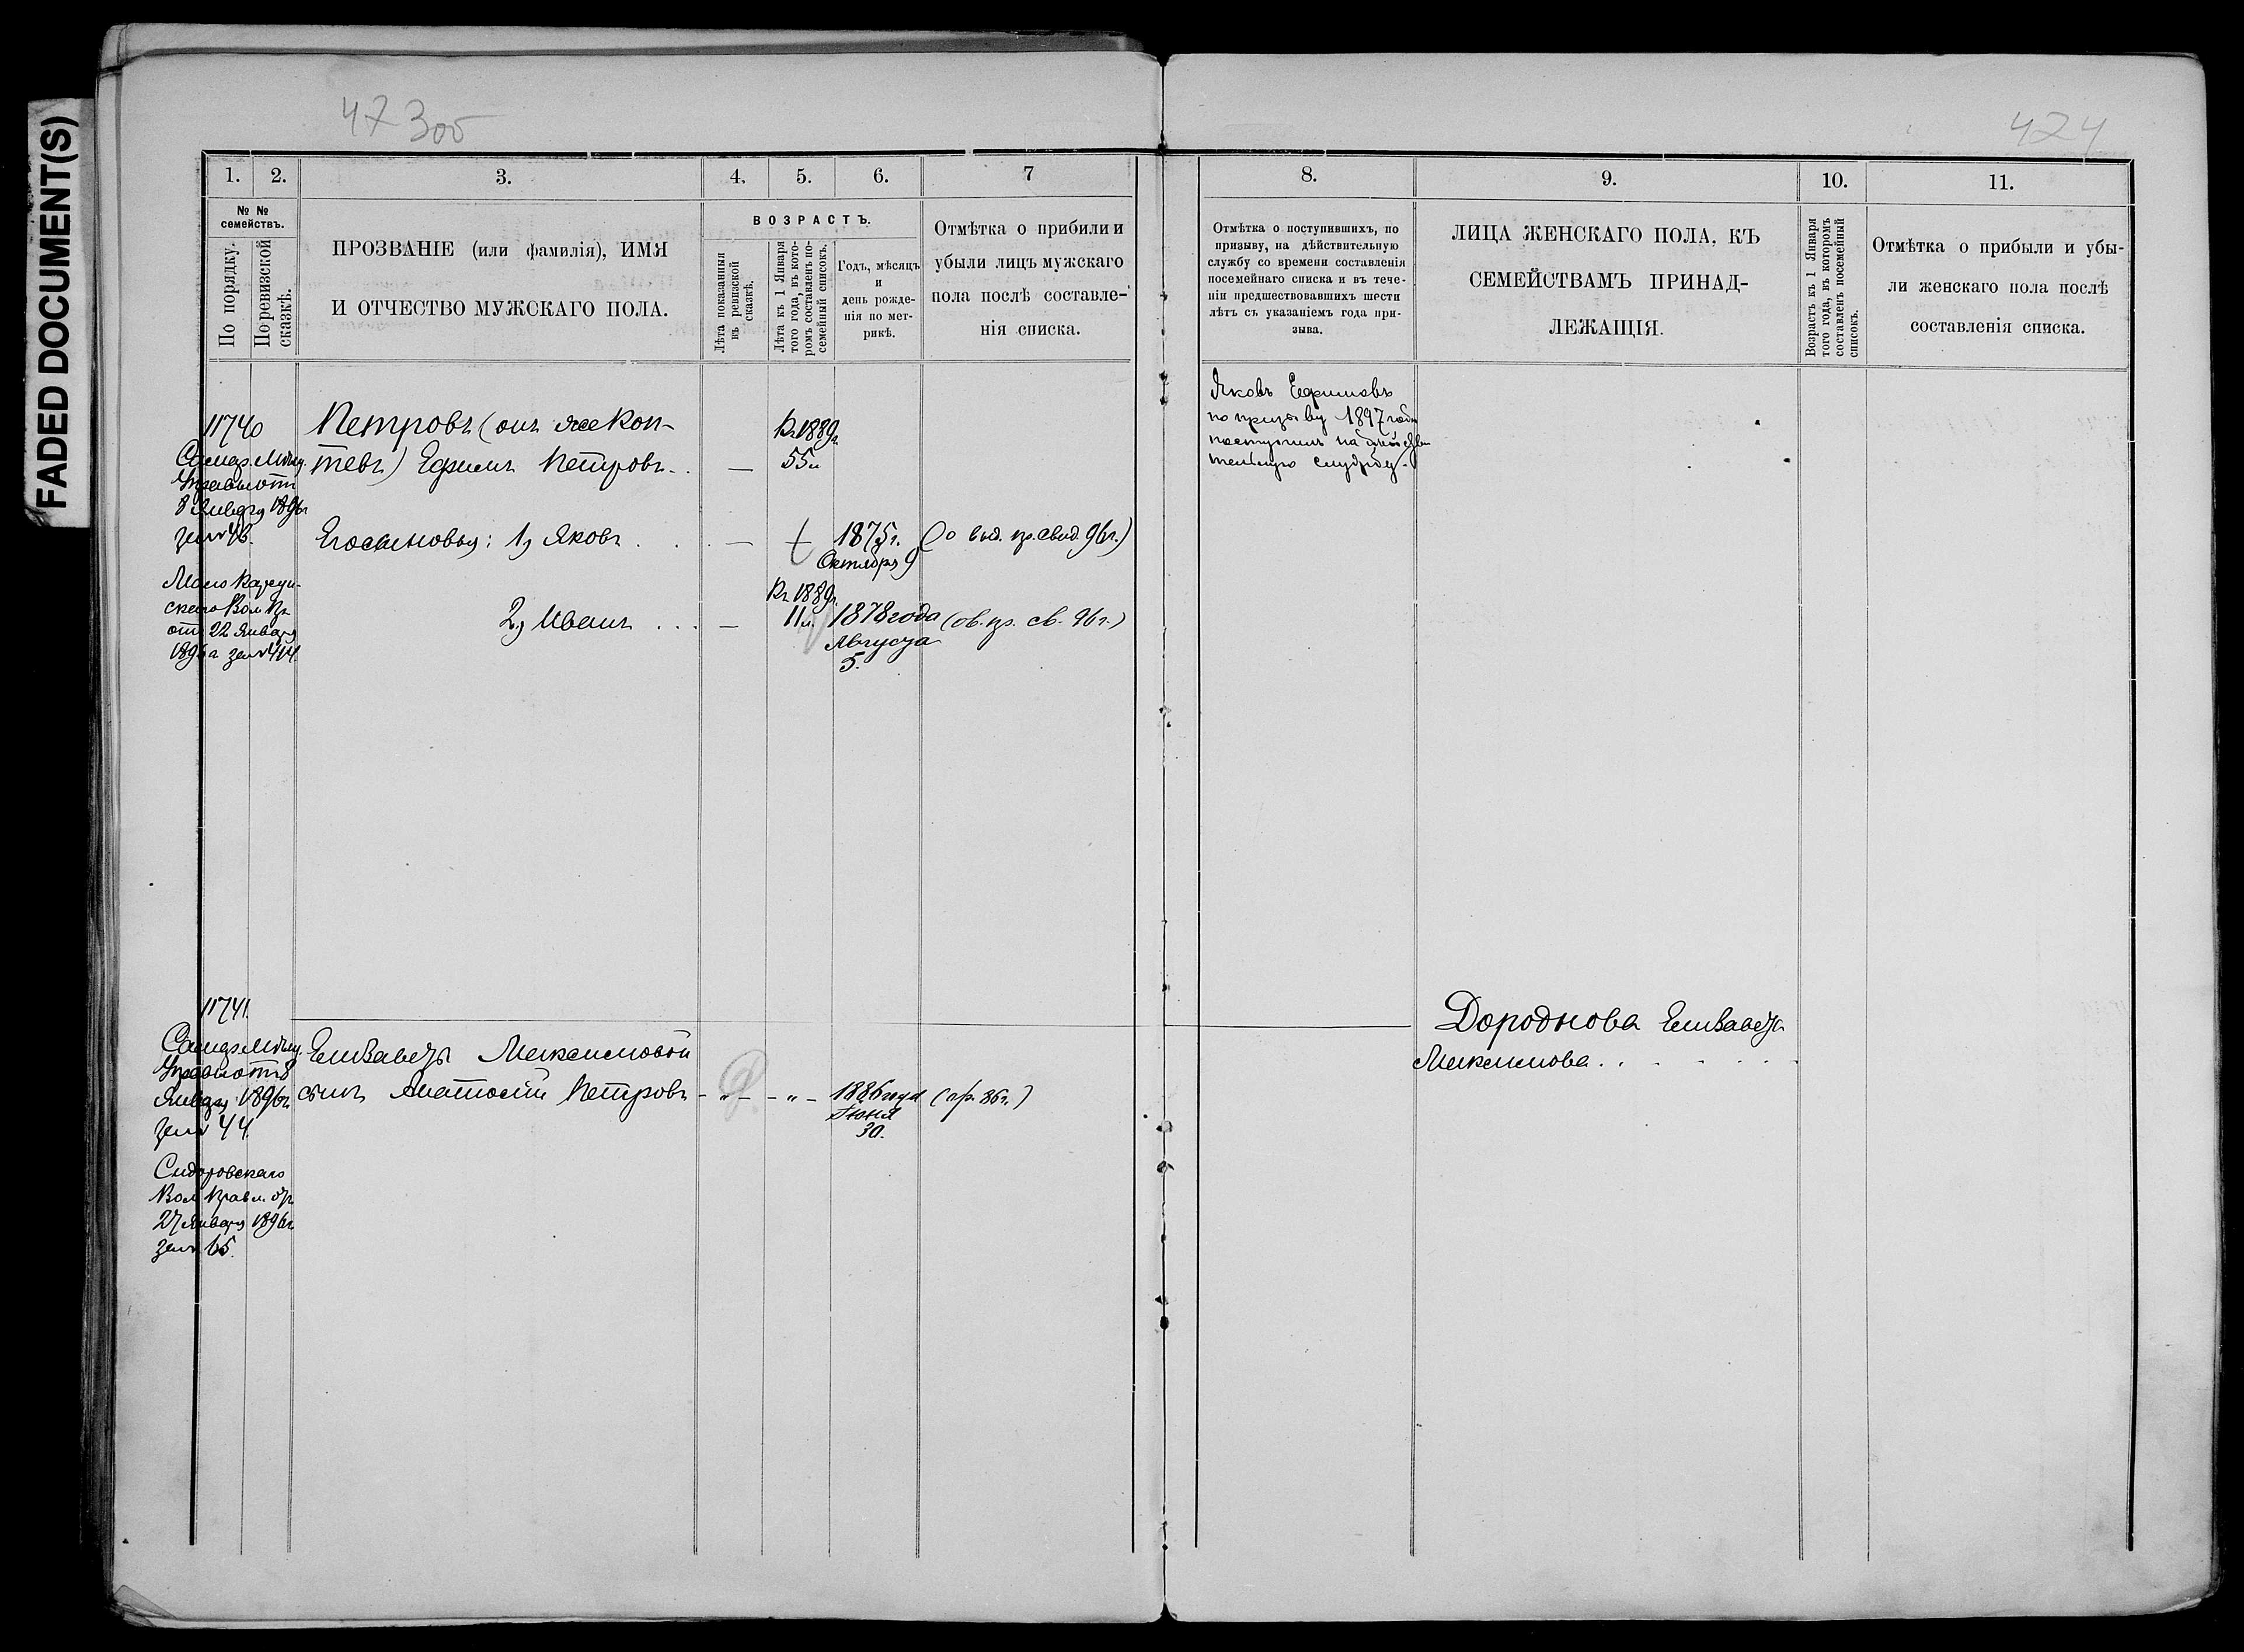 FADED DOCUMENT(S)
47 305
424
1. 2. 3. 4. 5. 6. 7
№ №
семействъ.
По порядку.
По ревизской
сказкѣ.
ПРОЗВАНІЕ (или фамилія), ИМЯ
И ОТЧЕСТВО МУЖСКАГО ПОЛА.
ВОЗРАСТЪ.
Лѣта показанныя
въ ревизской
сказкѣ.
Лѣта къ 1 Января
того года, въ кото-
ромъ составленъ по-
семейный списокъ.
Годъ, мѣсяцъ
и
день рожде-
нія по мет-
рикѣ.
Отмѣтка о прибили и
убыли лицъ мужскаго
пола послѣ составле-
нія списка.
11740
Самар. Мѣщ.
Управы отъ
8 Января 1896 г.
за № 43.
Мало
Вол. Пр.
отъ 22 Января
1896 г. за № 414.
Петровъ (онъ же Коп-
тевъ) Ефимъ Петровъ . . —
Къ 1889 г.
55 л.
Его сыновья: 1, Яковъ . . . — 1875 г.
Октября 9
2, Иванъ . . . —
Къ 1889 г.
11 л. 1878 года
Августа
5.
11741.
Самар. Мѣщ.
Управы отъ 8
Января 1896 г.
за № 44.
Сидоровскаго
Вол. Правл. отъ
27 Января 1896 г.
за № 65.
Елизаветы Максимовой
сынъ Анатолій Петровъ - „ - - „ - 1886 года
Іюня
30.
8. 9. 10. 11.
Отмѣтка о поступившихъ, по
призыву, на дѣйствительную
службу со времени составленія
посемейнаго списка и въ тече-
ніи предшествовавшихъ шести
лѣтъ съ указаніемъ года при-
зыва.
ЛИЦА ЖЕНСКАГО ПОЛА, КЪ
СЕМЕЙСТВАМЪ ПРИНАД-
ЛЕЖАЩІЯ.
Возрастъ къ 1 Января
того года, въ которомъ
составленъ посемейный
списокъ.
Отмѣтка о прибыли и убы-
ли женскаго пола послѣ
составленія списка.
Яковъ Ефимовъ
по призыву 1897 года
поступилъ на дѣйстви
тельную службу.
Дороднова Елизавета
Максимова . . . . . . .